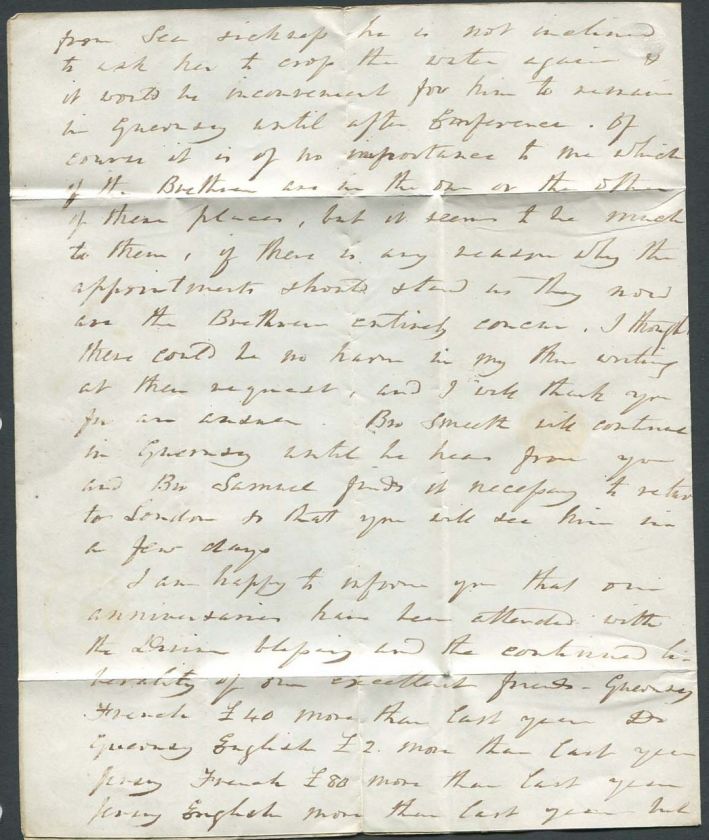 from Sea sickness he is not inclined
to ask her to cross the water again &
it would be inconvenient for him to remain
in Guernsey until after Conference. Of
course it is of no importance to me which
of the Brethren are in the one or the other
of these places, but it seems to be much
to them, if there is any reason why the
appointments should stand as they now
are the Brethren entirely concur. I though
there could be no harm in my thus writing
at their request, and I will thank you
for an answer. Bro Smeeth will continue
in Guernsey until he hears from you
and Bro Samuel finds it necessary to retur
to London so that you will see him in
a few days
I am happy to inform you that our
anniversaries have been attended with
the Divine blessing and the continued li-
berality of our excellent friends - Guernsey
French £40 more than last year Do
Guernsey English £2. more than last year
Jersey French £80 more than last year
Jersey English more than last year but